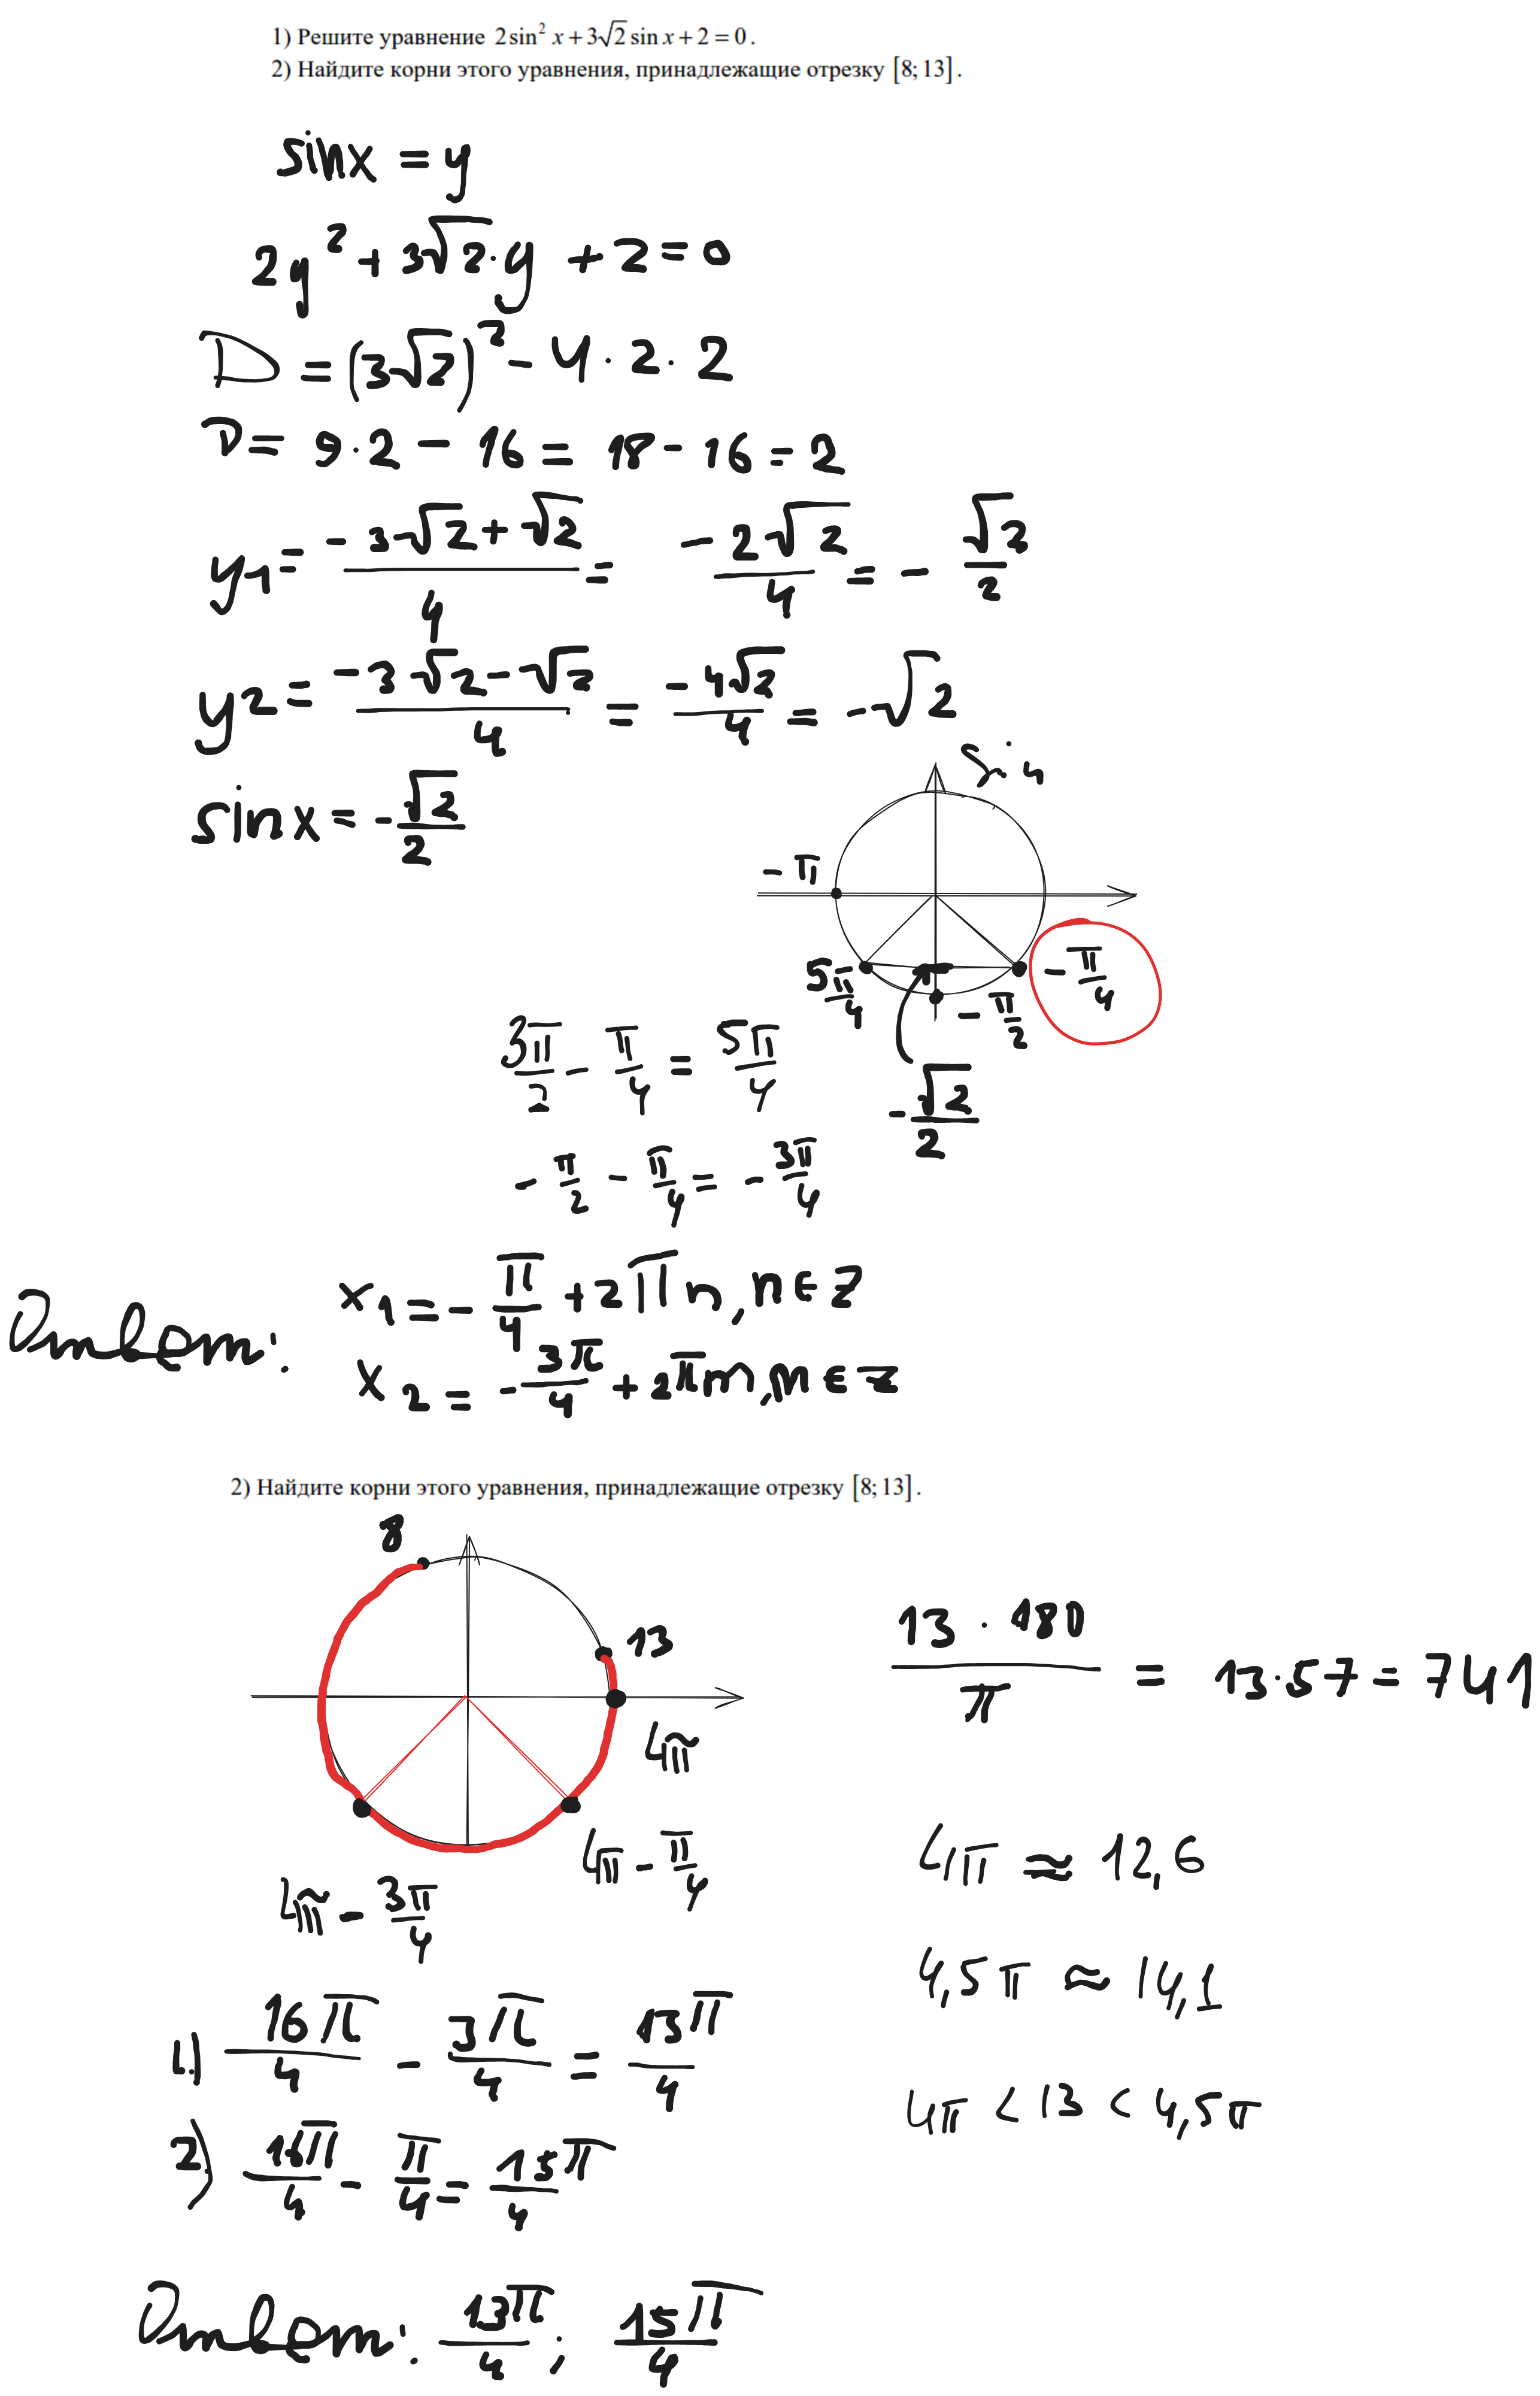 1) Решите уравнение 2sin² x + 3√2 sin x + 2 = 0.
2) Найдите корни этого уравнения, принадлежащие отрезку [8; 13].
sinx = y
2y² + 3√2·y + 2 = 0
D = (3√2)² - 4 · 2 · 2
D = 9·2 - 16 = 18 - 16 = 2
y1 = (-3√2 + √2)/4 = -2√2/4 = -√2/2
y2 = (-3√2 - √2)/4 = -4√2/4 = -√2
sin x = -√2/2
sin
-π
5π/4
-π/4
-π/2
-√2/2
3π/2 - π/4 = 5π/4
-π/2 - π/4 = -3π/4
Ответ: x1 = -π/4 + 2πn, n∈Z
x2 = -3π/4 + 2πm, m∈Z
2) Найдите корни этого уравнения, принадлежащие отрезку [8; 13].
8
13
4π
4π - π/4
4π - 3π/4
13 · 180/π = 13·57 = 741
4π ≈ 12,6
4,5π ≈ 14,1
4π < 13 < 4,5π
1.) 16π/4 - 3π/4 = 13π/4
2) 16π/4 - π/4 = 15π/4
Ответ: 13π/4 ; 15π/4